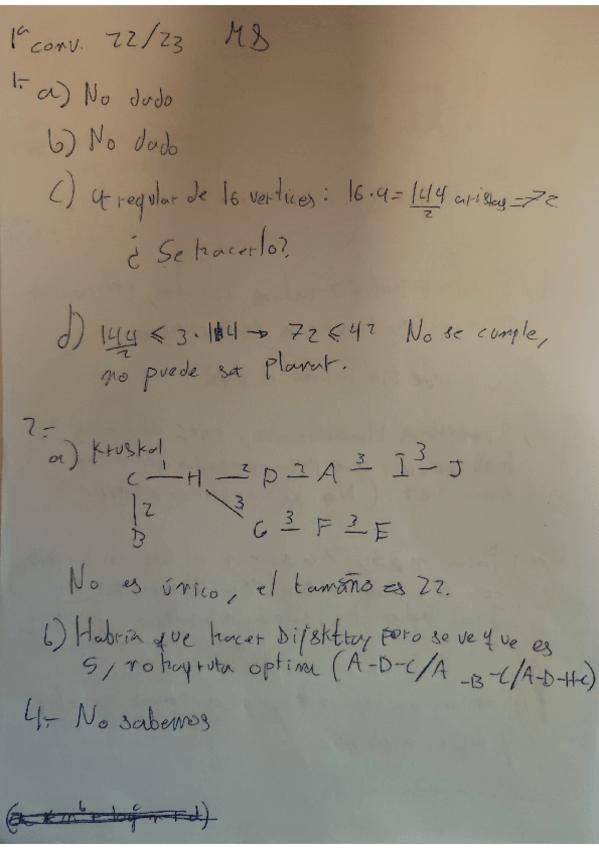 1ª conv. 22/23 MD
1.- a) No dado
b) No dado
c) 9 regular de 16 vertices: 16·9 = 144/2 aristas = 72
¿Se hacerlo?
d) 144/2 ≤ 3·14 → 72 ≤ 42 No se cumple,
no puede ser planar.
2.-
a) Kruskal
C —1— H —2— D —2— A —3— I —3— J
| 2 \ 3
B G —3— F —3— E
No es único, el tamaño es 22.
b) Habría que hacer Dijsktray pero se ve que es
5, no hay ruta optima (A-D-C/A-B-C/A-D-H-C)
4.- No sabemos